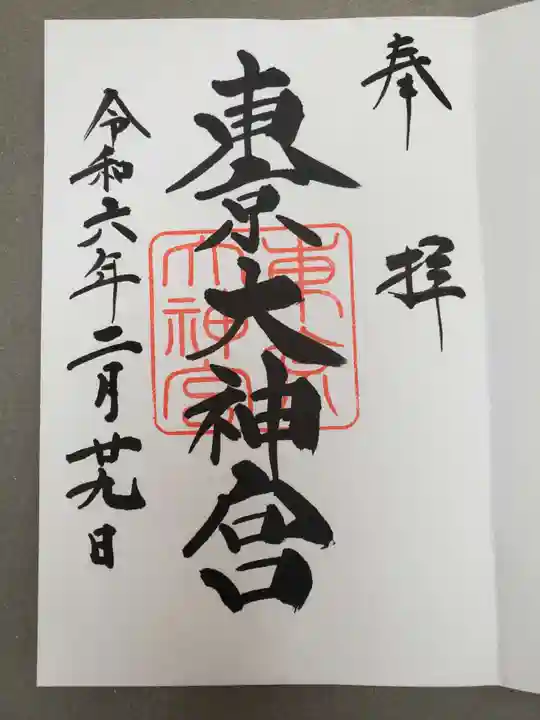 奉拝
東京大神宮
東京
大神宮
令和六年二月廿九日